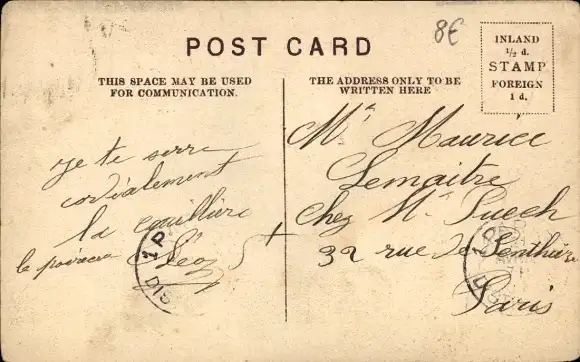 8€
POST CARD
INLAND
½ d.
STAMP
FOREIGN
1 d.
THIS SPACE MAY BE USED
FOR COMMUNICATION.
THE ADDRESS ONLY TO BE
WRITTEN HERE
Je te serre
cordialement
la cuillère
Léon
Mr. Maurice
Lemaitre
Chez Mr. Puech
32 rue de
Paris
1 P
DIS